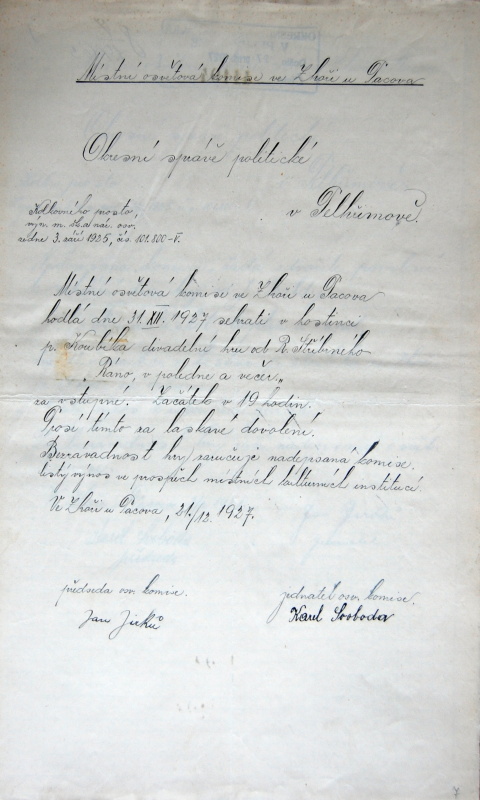 Místní osvětová komise ve Zhoři u Pacova
Okresní správě politické
v Pelhřimově.
Kolkovného prosto,
výn. m. šk. a nár. osv.
ze dne 3. září 1925, čís. 101.800-V.
Místní osvětová komise ve Zhoři u Pacova
hodlá dne 31. XII. 1927 sehrati v hostinci
p. Koubka divadelní hru od R. Stříbrného
„Ráno, v poledne a večer„
za vstupné. Začátek v 19 hodin.
Prosí tímto za laskavé dovolení.
Bezzávadnost hry zaručuje nadepsaná komise.
Čistý výnos ve prospěch místních kulturních institucí.
Ve Zhoři u Pacova, 21./12. 1927.
předseda osv. komise.
jednatel osv. komise.
Jan Jirků
Karel Svoboda